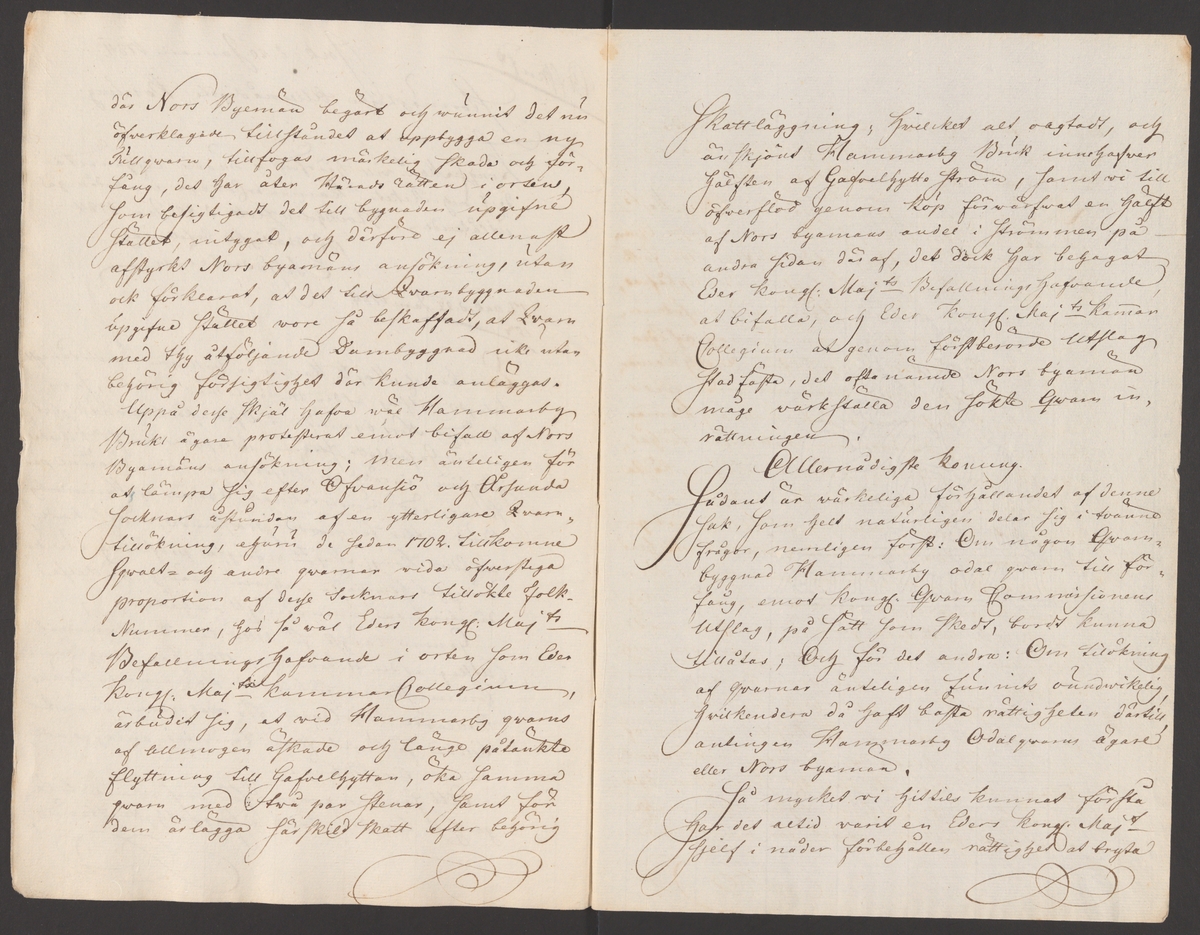 där Nors Byemän begärt och wunnit det nu
öfverklagade tillståndet at uppbygga en ny
Tullqwarn, tillfogas märkelig skada och för-
fång, det har åter Härads Rätten i orten,
som besigtigadt det till bygnaden upgifne
stället, intygat, och därföre ej allenast
afstyrkt Nors byamäns ansökning, utan
ock förklarat, at det till Qvarnbyggnaden
upgifne stället wore så beskaffadt, at Qvarn
med thy åtföljande Dambyggnad icke utan
behörig försigtighet där kunde anläggas.
Uppå desse skjäl hafva wäl Hammarby
Bruks ägare protesterat emot bifall af Nors
Byamäns ansökning; men änteligen för
at lämpa sig efter Ofvansjö och Årsunda
socknars åstundan af en ytterligare Qvarn-
tillökning, ehuru de sedan 1702. tillkomne
Sqvalt= och andre qwarnar vida öfverstiga
proportion af desse socknars tillökte folk-
Nummer, hos så wäl Eders Kongl. Maj:ts
Befallningshafvande i orten som Eder
Kongl. Maj:ts Kammar Collegium,
ärbudit sig, at wid Hammarby qwarns
af allmogen äskade och länge påtänkte
flyttning till Gafvelhyttan, öka samma
qwarn med twå par stenar, samt för
dem ärlägga särskild skatt efter behörig
Skattläggning; hwilcket alt oagtadt, och
änskjönt Hammarby Bruk innehafver
hälften af Gafvelhytte ström, samt vi till
öfverflöd genom köp förwärfwat en hälft
af Nors byamäns andel i strömmen på
andra sidan däraf, det dock har behagat
Eder Kongl. Maj:ts Befallningshafvande,
at bifalla, och Eder Kongl. Maj:ts Kammar
Collegium at genom förstberörde Utslag
stadfästa, det oftanämde Nors byamän
måge wärkställa den sökte Qwarn in-
rättningen.
Allernådigste Konung.
Sådant är wärkeliga förhållandet af denne
sak, som helt naturligen delar sig i tvänne
frågor, nemligen först: Om någon Qwarn-
byggnad Hammarby odal qwarn till för-
fång, emot Kongl. Qwarn Commissionens
Utslag, på sätt som skedt, bordt kunna
tillåtas; Och för det andra: Om tilökning
af qwarnar änteligen funnits oundwikelig,
hwilkendera då haft bästa rättigheten därtill,
antingen Hammarby Odalqwarns ägare
eller Nors byamän.
Så mycket vi hittils kunnat förstå
har det altid varit en Eders Kongl. Maj:t
sjelf i nåder förbehållen rättighet at bryta